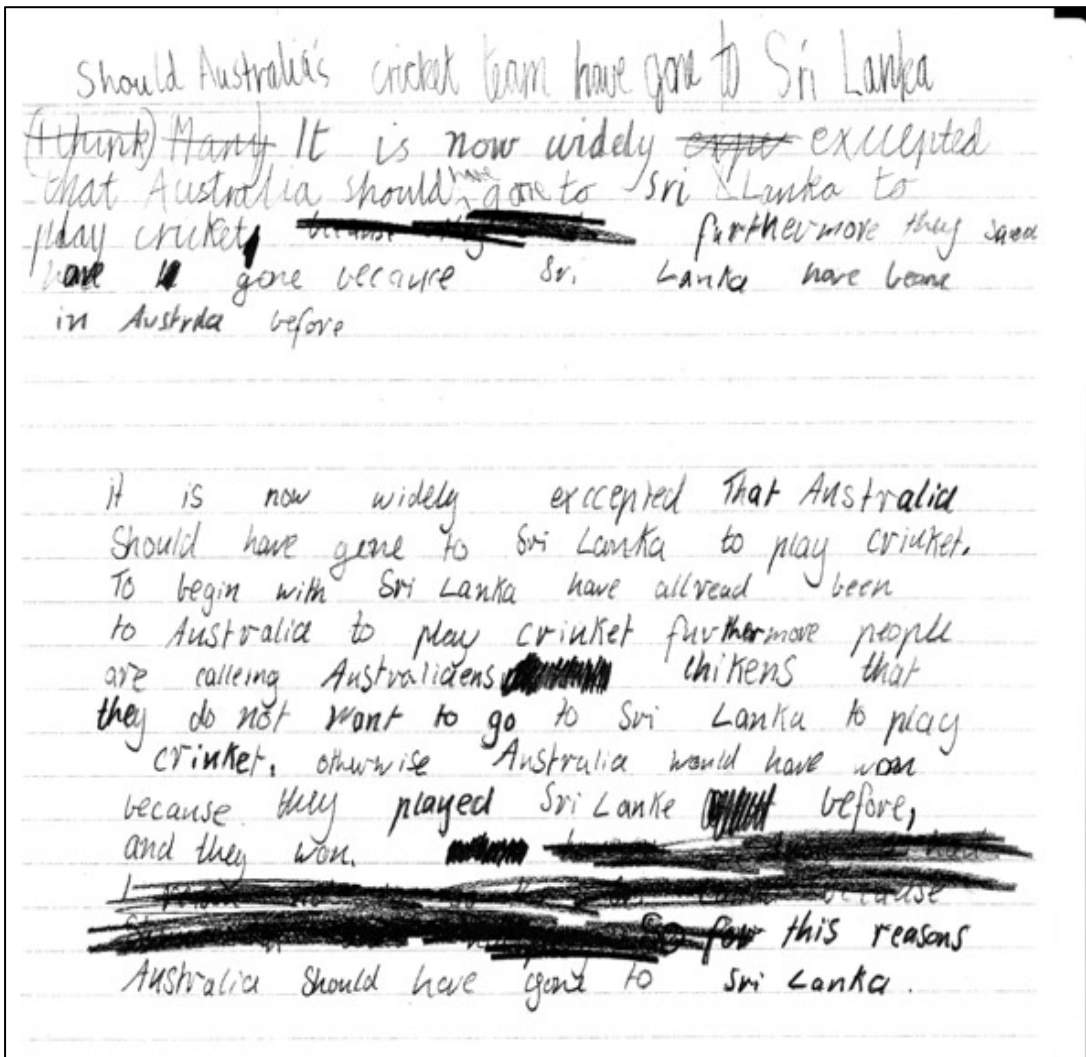 Should Australia's cricket team have gone to Sri Lanka
(I think) Many It is now widely excepted
that Australia should have gone to Sri Lanka to
play cricket, because furthermore they
have gone because Sri Lanka have beane
in Austrda before
it is now widely exccepted That Australia
Should have gone to Sri Lanka to play crinket.
To begin with Sri Lanka have allread been
to Australia to play crinket furthermore people
are calleing Australidens chikens that
they do not want to go to Sri Lanka to play
crinket, otherwise Australia would have won
because they played Sri Lanke before,
and they won.
because
So for this reasons
Australia should have gone to Sri Lanka.